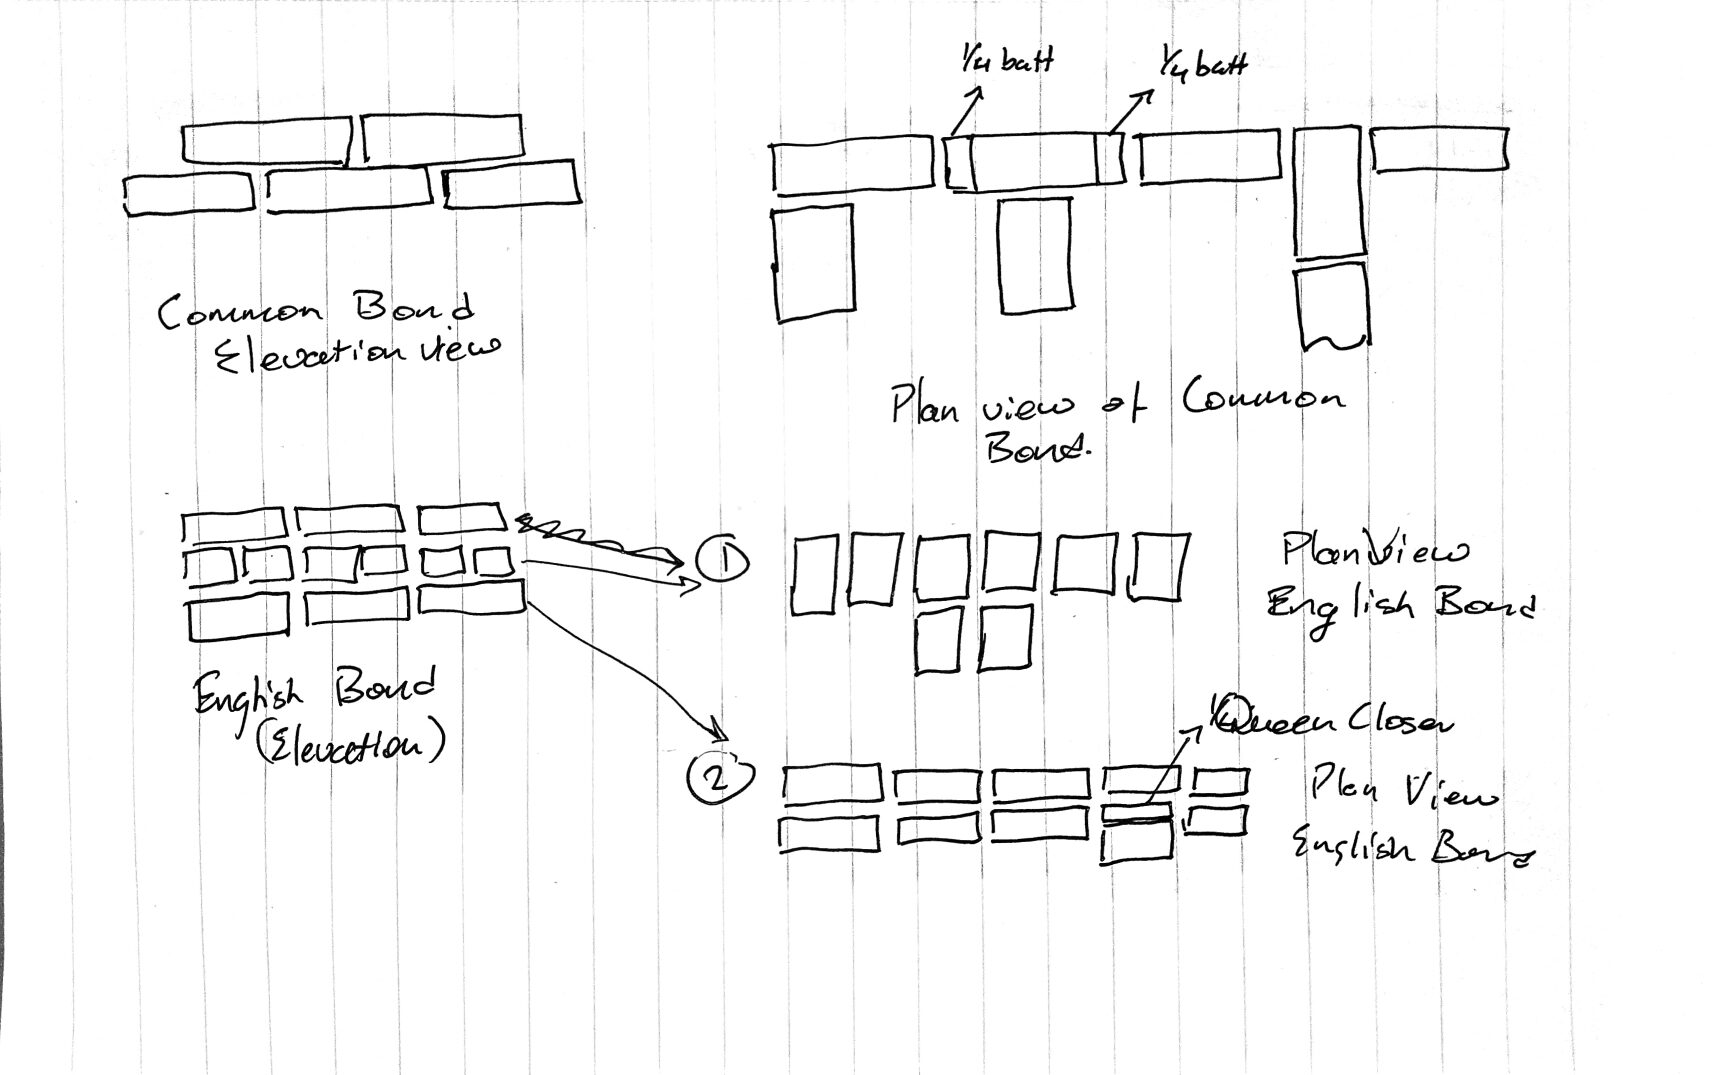 1/4 batt
1/4 batt
Common Bond
Elevation view
Plan view of Common
Bond.
English Bond
(Elevation)
1
Plan View
English Bond
2
Queen Closer
Plan View
English Bond